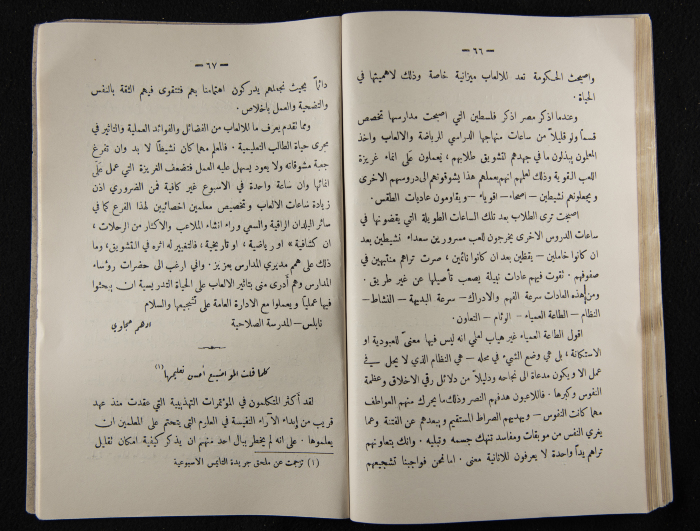 — ٦٦ —
واصبحت الحكومة تعد للالعاب ميزانية خاصة وذلك لاهميتها في
الحياة .
وعندما اذكر مصر اذكر فلسطين التي اصبحت مدارسها تخصص
قسماً ولو قليلاً من ساعات منهاجها الدراسي للرياضة والالعاب واخذ
المعلمون يبذلون ما في جهدهم لتشويق طلابهم ، يعملون على انماء غريزة
اللعب القوية وذلك لعلمهم انهم بعملهم هذا يشوقونهم الى دروسهم الاخرى
ويجعلونهم نشيطين — اصحاء — اقوياء — ويقاومون عاديات الطقس .
اصبحت ترى الطلاب بعد تلك الساعات الطويلة التي يقضونها في
ساعات الدروس الاخرى يخرجون للعب مسرورين سعداء نشيطين بعد
ان كانوا خاملين — يقظين بعد ان كانوا نائمين ، صرت تراهم متآنيهين في
صفوفهم . تقوت فيهم عادات نبيلة يصعب تأصيلها عن غير طريق .
ومن هذه العادات سرعة الفهم والادراك — سرعة البديهة — النشاط —
النظام — الطاعة العمياء — الوئام — التعاون .
اقول الطاعة العمياء غير هياب لعلمي انه ليس فيها معنىً للعبودية او
الاستكانة ، بل هي وضع الشيء في محله — هي النظام الذي لا يحل في
عمل الا ويكون مدعاة الى نجاحه ودليلاً من دلائل رقي الاخلاق وعظمة
النفوس وكبرها . فاللاعبون هدفهم النصر وذلك ما يحرك منهم العواطف
مهما كانت النفوس — ويهديهم الصراط المستقيم ويبعدهم عن الفتنة وعما
يغري النفس من موبقات ومفاسد تنهك جسمه وتبليه . وانك بتعاونهم
تراهم يداً واحدة لا يعرفون للانانية معنى . اما نحن فواجبنا تشجيعهم
— ٦٧ —
دائماً بحيث نجعلهم يدركون اهتمامنا بهم فتتقوى فيهم الثقة بالنفس
والتضحية والعمل باخلاص .
ومما تقدم يعرف ما للالعاب من الفضائل والفوائد العملية والتاثير في
مجرى حياة الطالب التعليمية . فالمعلم مهما كان نشيطاً لا بد وان تفرغ
جعبة مشوقاته ولا يعود يسهل عليه العمل فتضعف الغريزة التي عمل على
انمائها وان ساعة واحدة في الاسبوع غير كافية فمن الضروري اذن
زيادة ساعات الالعاب وتخصيص معلمين اخصائيين لهذا الفرع كما في
سائر البلدان الراقية والسعي وراء انشاء الملاعب والاكثار من الرحلات ،
ان كشافية » او رياضية ، او تاريخية ، فالتغيير له اثره في التشويق ، وما
ذلك على همم مديري المدارس بعزيز . واني ارغب الى حضرات رؤساء
المدارس وهم أدرى مني بتاثير الالعاب على الحياة التدريسية ان يبحثوا
فيها عملياً ويعملوا مع الادارة العامة على تشجيعها والسلام
نابلس — المدرسة الصلاحية
كلما قلت المواضيع احسن تعليمها (١)
لقد أكثر المتكلمون في المؤتمرات التهذيبية التي عقدت منذ عهد
قريب من إبداء الآراء النفيسة في العلوم التي يتحتم على المعلمين ان
يعلموها . على انه لم يخطر ببال احد منهم ان يذكر كيفية امكان تقليل
(١) ترجمت عن ملحق جريدة التايمس الاسبوعية